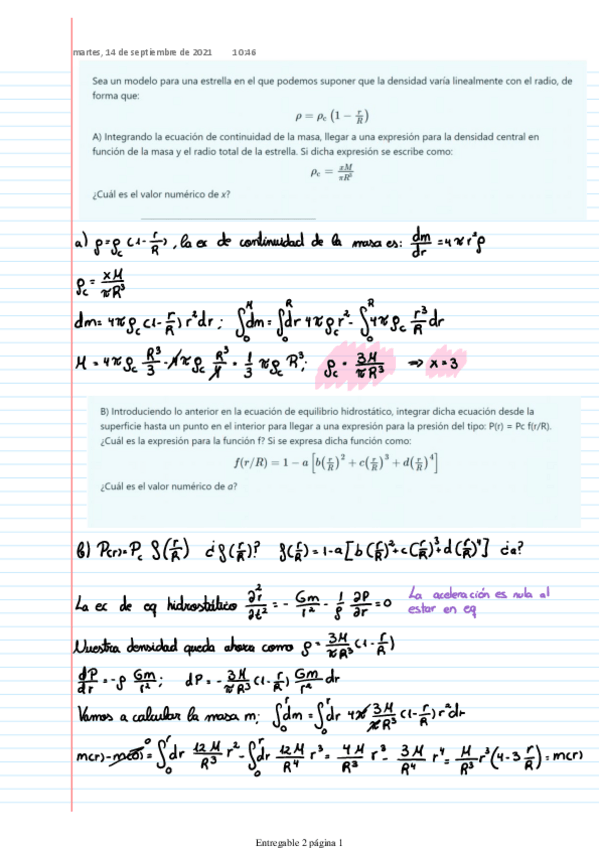 martes, 14 de septiembre de 2021 10:46
Sea un modelo para una estrella en el que podemos suponer que la densidad varía linealmente con el radio, de
forma que:
ρ = ρc (1 − r/R)
A) Integrando la ecuación de continuidad de la masa, llegar a una expresión para la densidad central en
función de la masa y el radio total de la estrella. Si dicha expresión se escribe como:
ρc = xM/πR³
¿Cuál es el valor numérico de x?
a) ρ=ρc (1-r/R), la ec de continuidad de la masa es: dm/dr = 4πr²ρ
ρc = xM/πR³
dm= 4πρc (1-r/R) r²dr ; ∫₀ᴹdm = ∫₀ᴿdr 4πρc r² - ∫₀ᴿ4πρc r³/R dr
M = 4πρc R³/3 - 4πρc R³/4 = 1/3 πρc R³; ρc = 3M/πR³ ⇒ x=3
B) Introduciendo lo anterior en la ecuación de equilibrio hidrostático, integrar dicha ecuación desde la
superficie hasta un punto en el interior para llegar a una expresión para la presión del tipo: P(r) = Pc f(r/R).
¿Cuál es la expresión para la función f? Si se expresa dicha función como:
f(r/R) = 1 − a [b(r/R)² + c(r/R)³ + d(r/R)⁴]
¿Cuál es el valor numérico de a?
b) P(r)=Pc f(r/R) ¿f(r/R)? f(r/R)=1-a[b(r/R)²+c(r/R)³+d(r/R)⁴] ¿a?
La ec de eq hidrostático ∂²r/∂t² = - Gm/r² - 1/ρ ∂P/∂r =0 La aceleración es nula al
estar en eq
Nuestra densidad queda ahora como ρ= 3M/πR³ (1-r/R)
dP/dr = -ρ Gm/r² ; dP= - 3M/πR³ (1-r/R) Gm/r² dr
Vamos a calcular la masa m; ∫₀ʳdm = ∫₀ʳdr 4π 3M/πR³ (1-r/R) r²dr
m(r)-m(0) = ∫₀ʳdr 12M/R³ r² - ∫₀ʳdr 12M/R⁴ r³ = 4M/R³ r³ - 3M/R⁴ r⁴ = M/R³ r³(4-3 r/R) = m(r)
Entregable 2 página 1